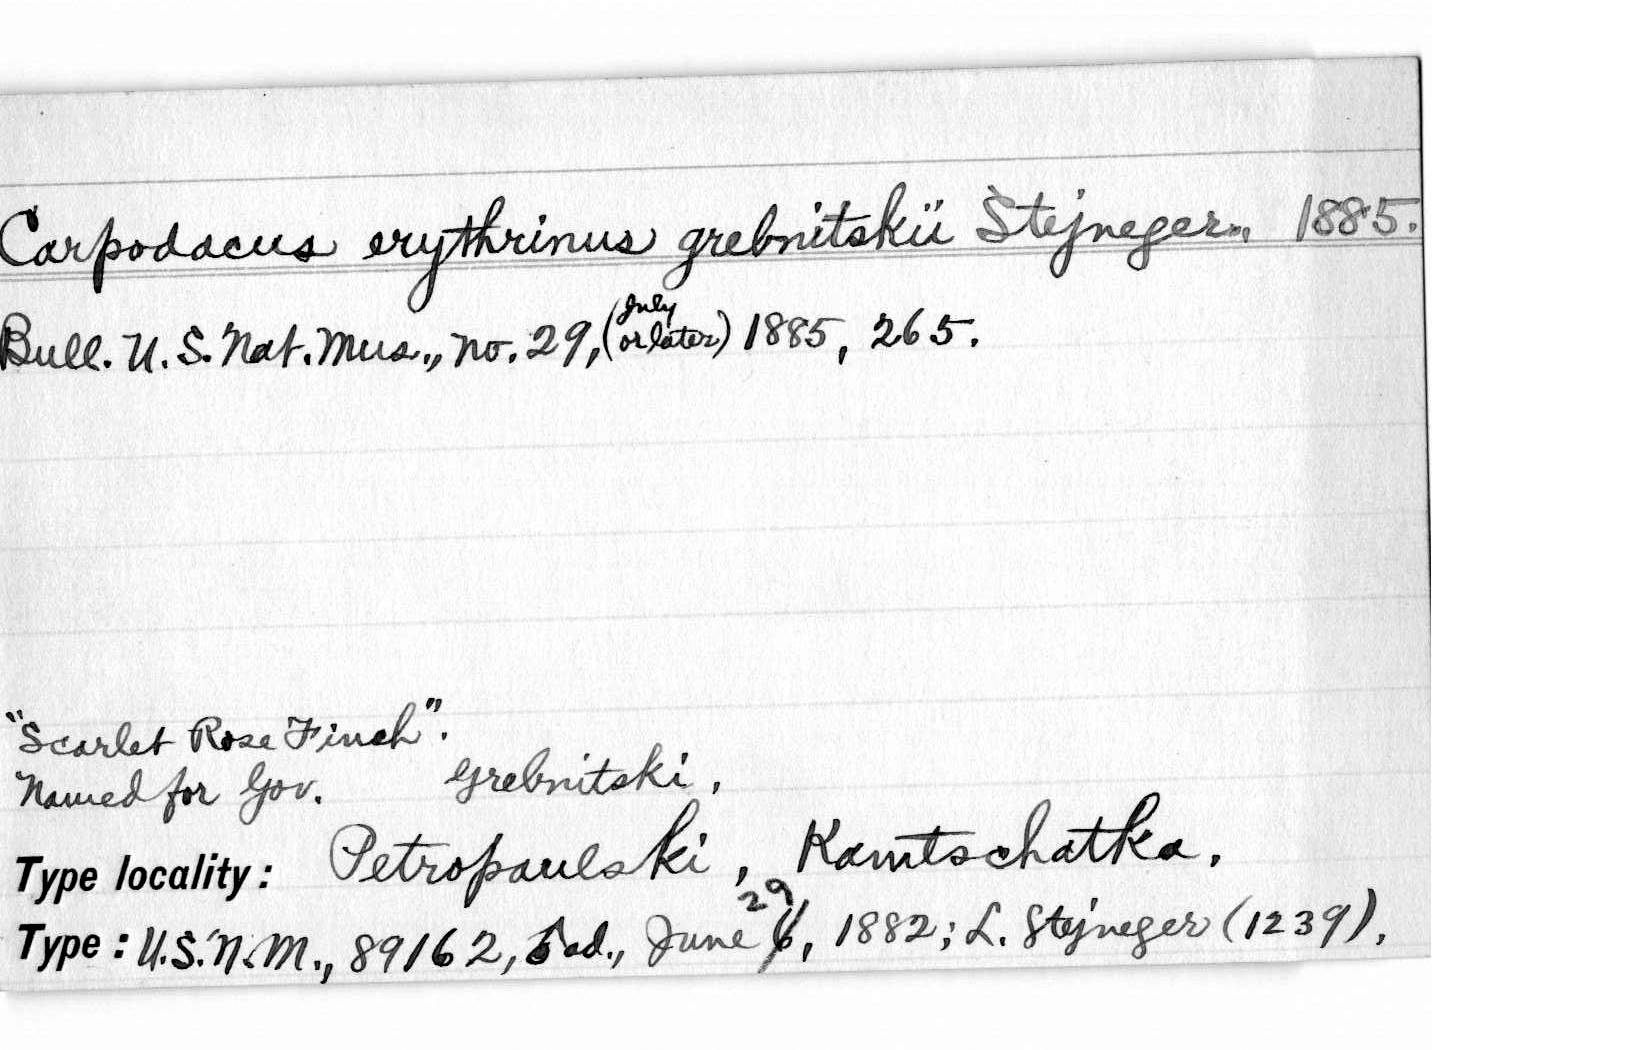 Carpodacus erythrinus grebnitskii Stejneger, 1885.
Bull. U.S. Nat. Mus., no. 29, (July or later) 1885, 265.
"Scarlet Rose Finch".
Named for Gov. Grebnitski,
Type locality: Petropaulski, Kamtschatka.
Type: U.S.N.M., 89162, ad., June 29, 1882; L. Stejneger (1239).